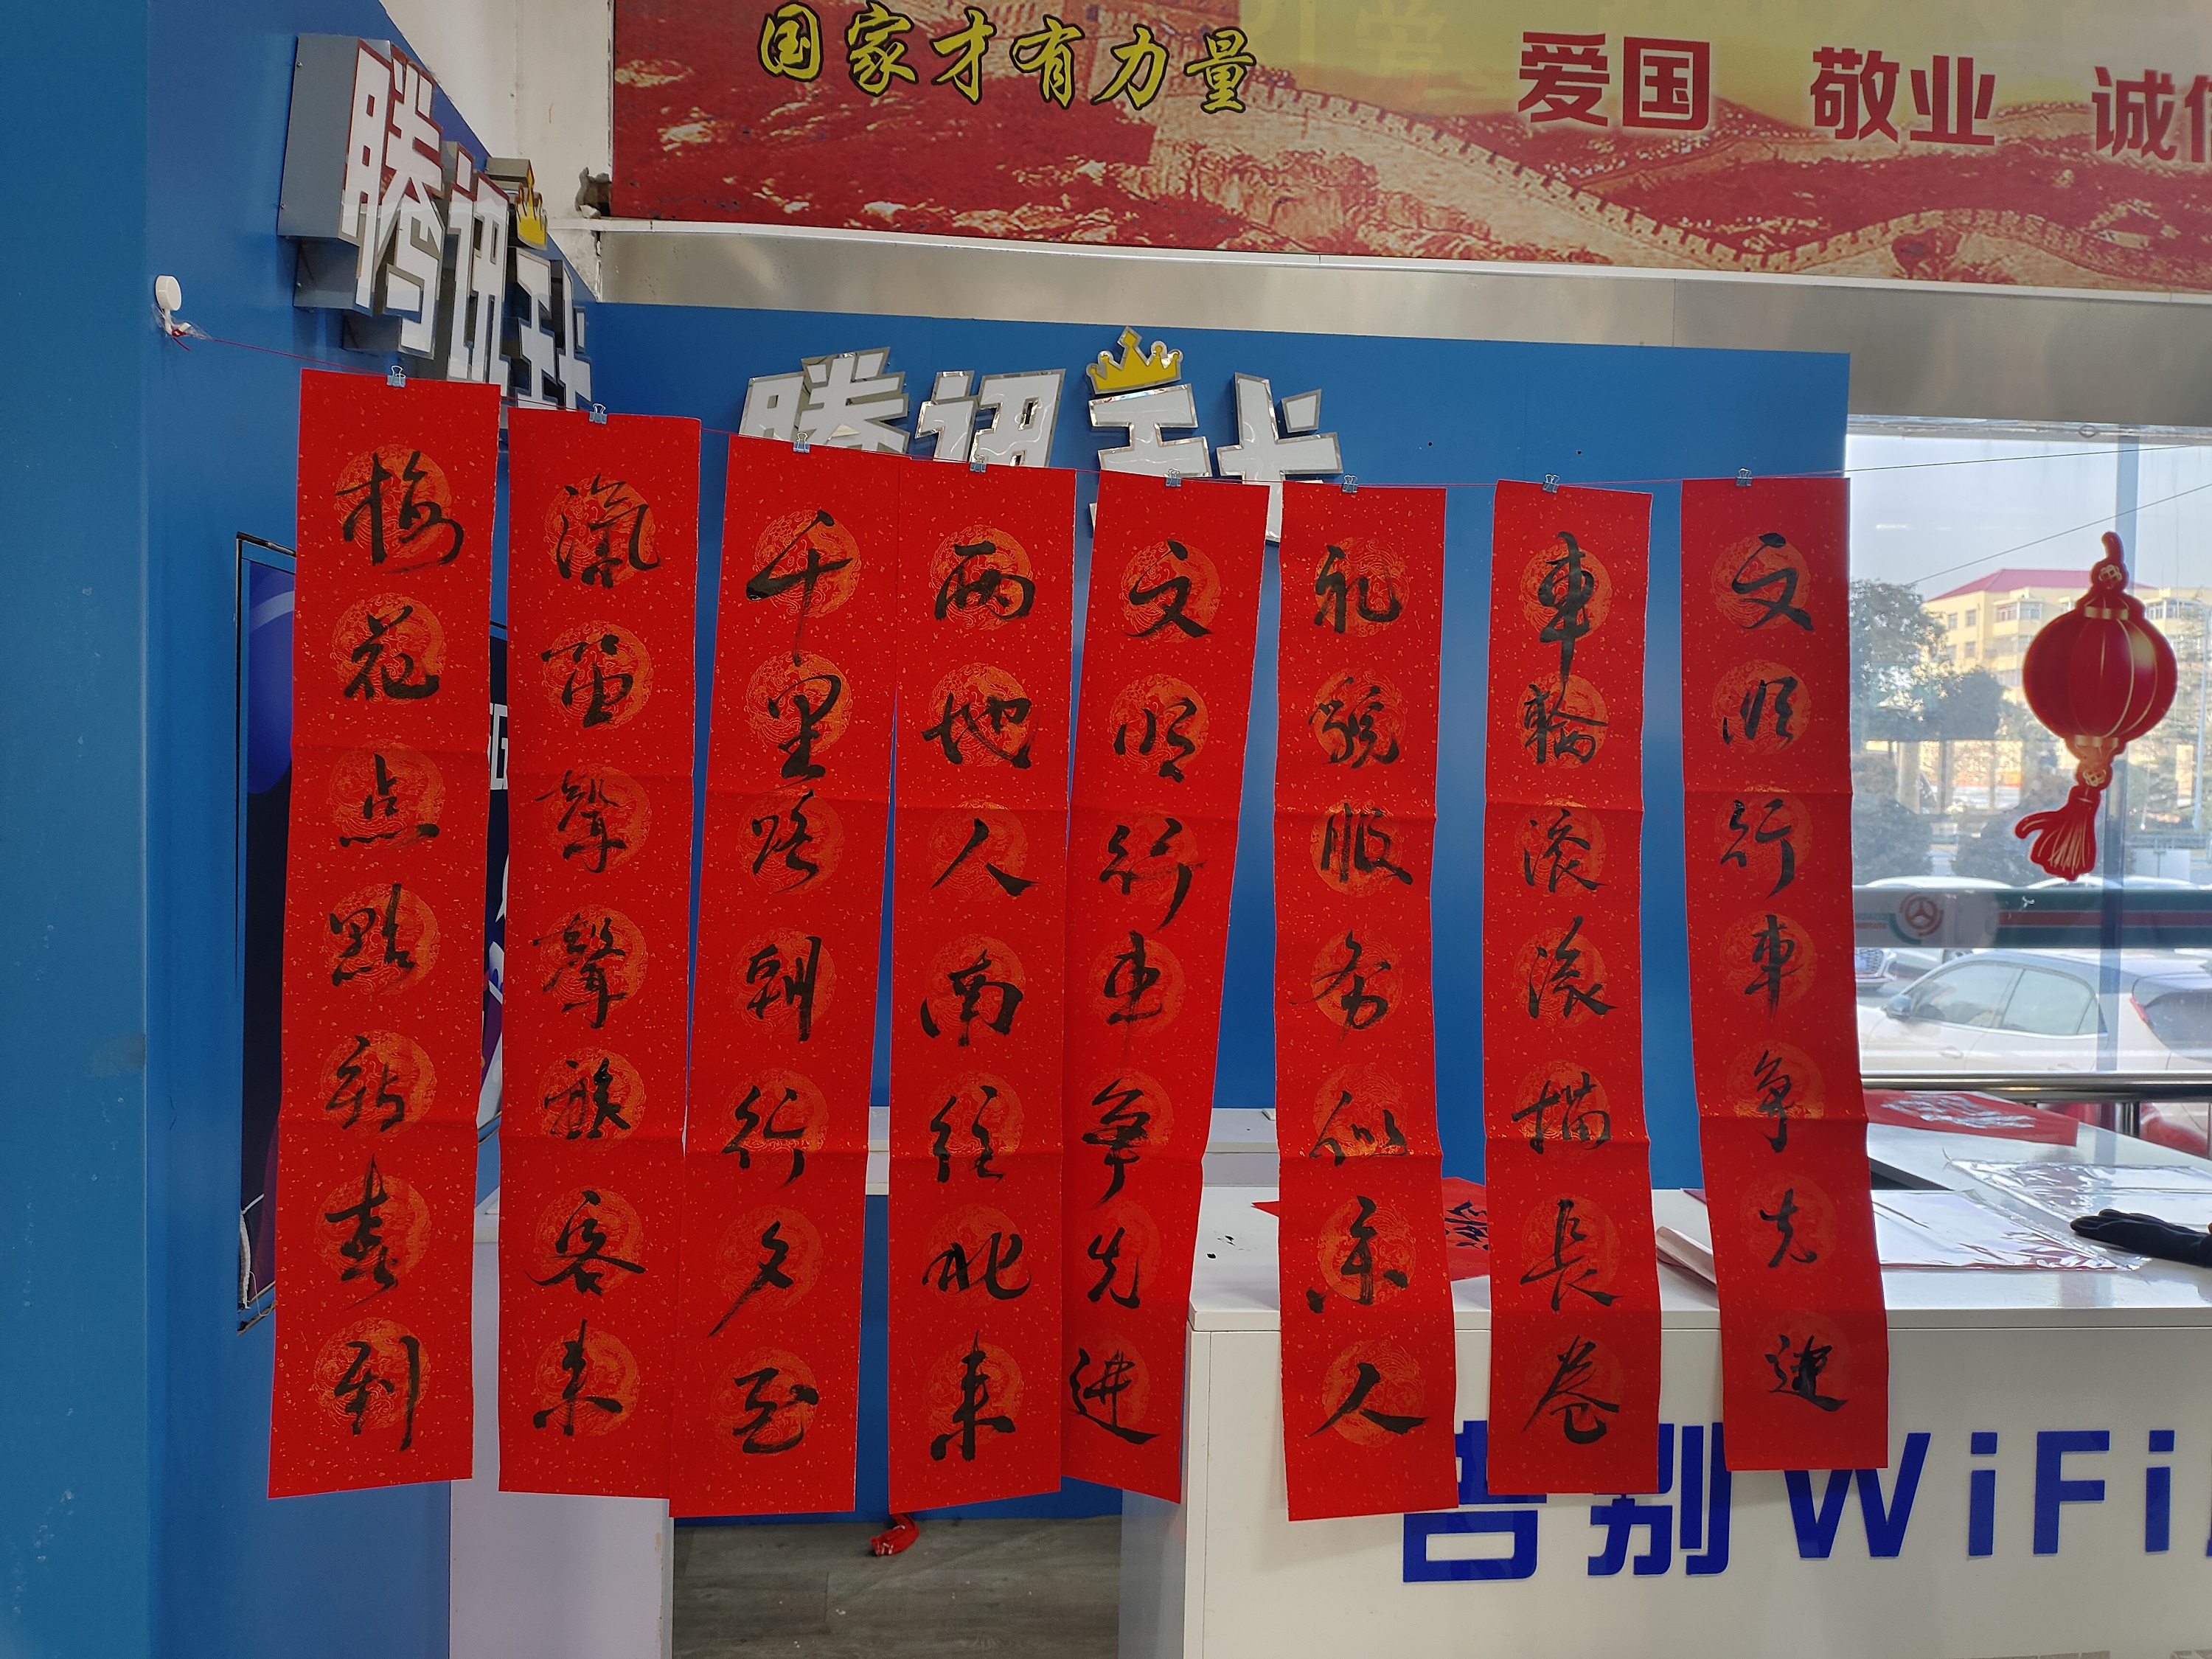 国家才有力量
爱国 敬业 诚信
腾讯王卡
腾讯王卡
梅花点點新春到
汽笛聲聲旅客来
千里路朝行夕至
两地人南往北来
文明行車争先进
礼貌服务似亲人
車輪滚滚描長卷
文明行車争先进
告别WiFi